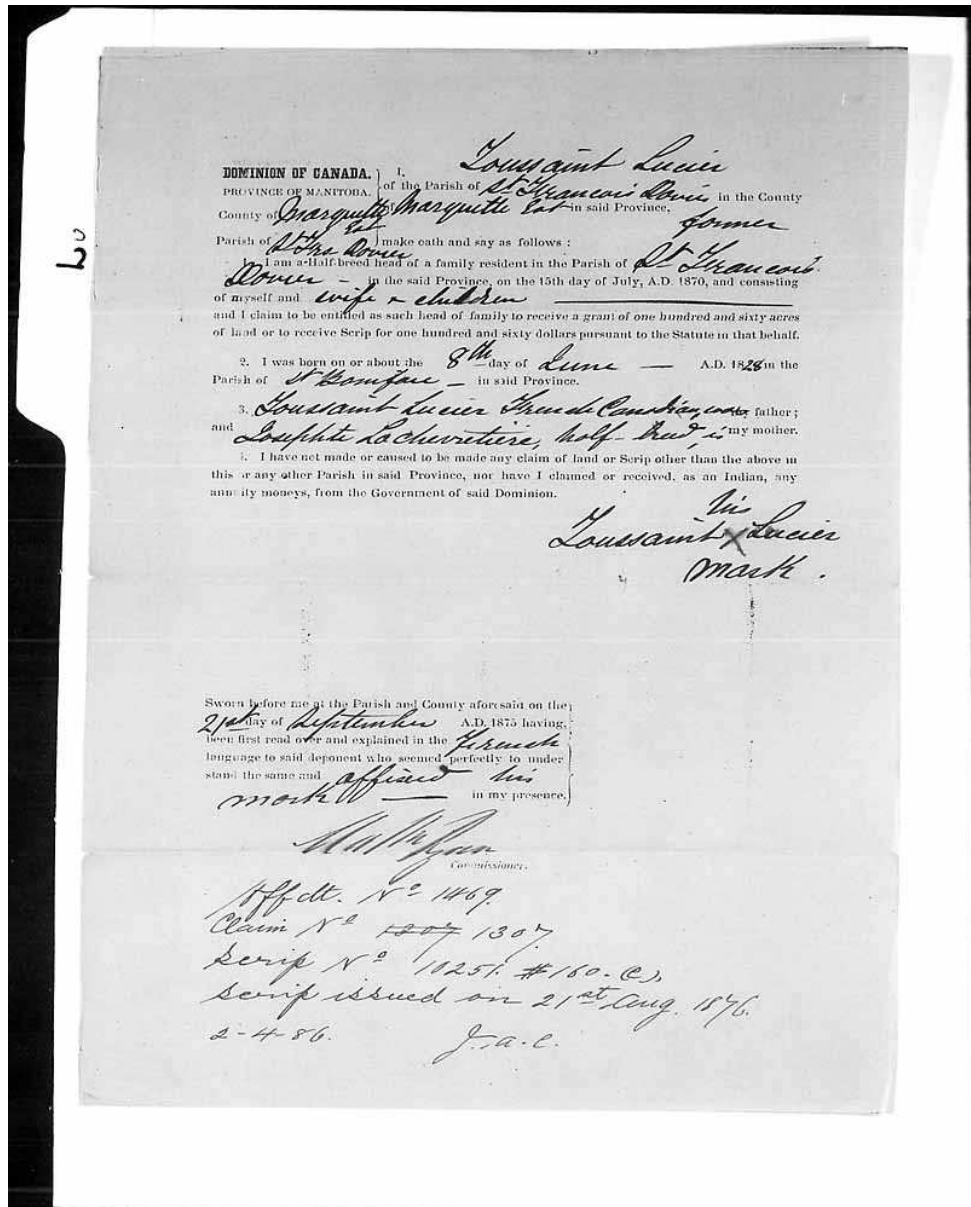 Toussaint Lucier
DOMINION OF CANADA. I,
PROVINCE OF MANITOBA. of the Parish of St Francois Xavier in the County
County of Marquette Marquette East in said Province, farmer
East
Parish of St Frs Xavier make oath and say as follows :
1. I am a Half-breed head of a family resident in the Parish of St Francois
Xavier — in the said Province, on the 15th day of July, A.D. 1870, and consisting
of myself and wife & children
and I claim to be entitled as such head of family to receive a grant of one hundred and sixty acres
of land or to receive Scrip for one hundred and sixty dollars pursuant to the Statute in that behalf.
2. I was born on or about the 8th day of June — A.D. 1828 in the
Parish of St Boniface — in said Province.
3. Toussaint Lucier French Canadian, was father ;
and Josephte Lachevretiere, half-breed, is my mother.
4. I have not made or caused to be made any claim of land or Scrip other than the above in
this or any other Parish in said Province, nor have I claimed or received, as an Indian, any
annuity moneys, from the Government of said Dominion.
his
Toussaint X Lucier
mark.
Sworn before me at the Parish and County aforesaid on the
21st day of September A.D. 1875 having,
been first read over and explained in the French
language to said deponent who seemed perfectly to under
stand the same and affixed his
mark — in my presence.
Matt Ryan
Commissioner.
Affdt. No 1469.
Claim No 1307 1307.
Scrip No 10251. $160.
Scrip issued on 21st Aug. 1876.
2-4-86. J.a.c.